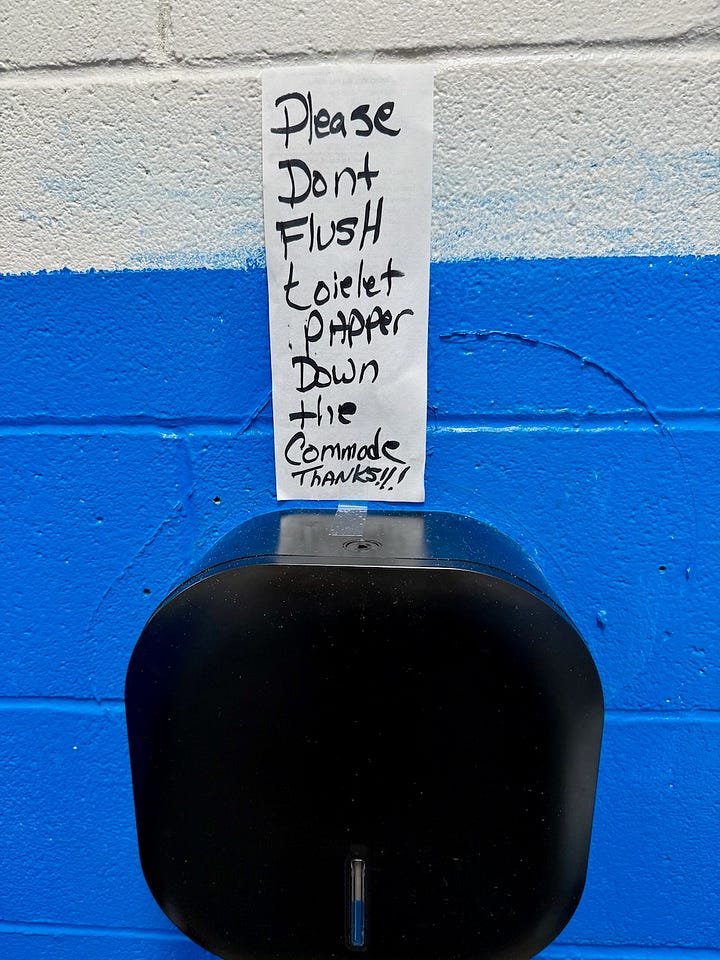 Please
Dont
FlusH
toielet
PAPPer
Down
the
Commode
THANKS!!!